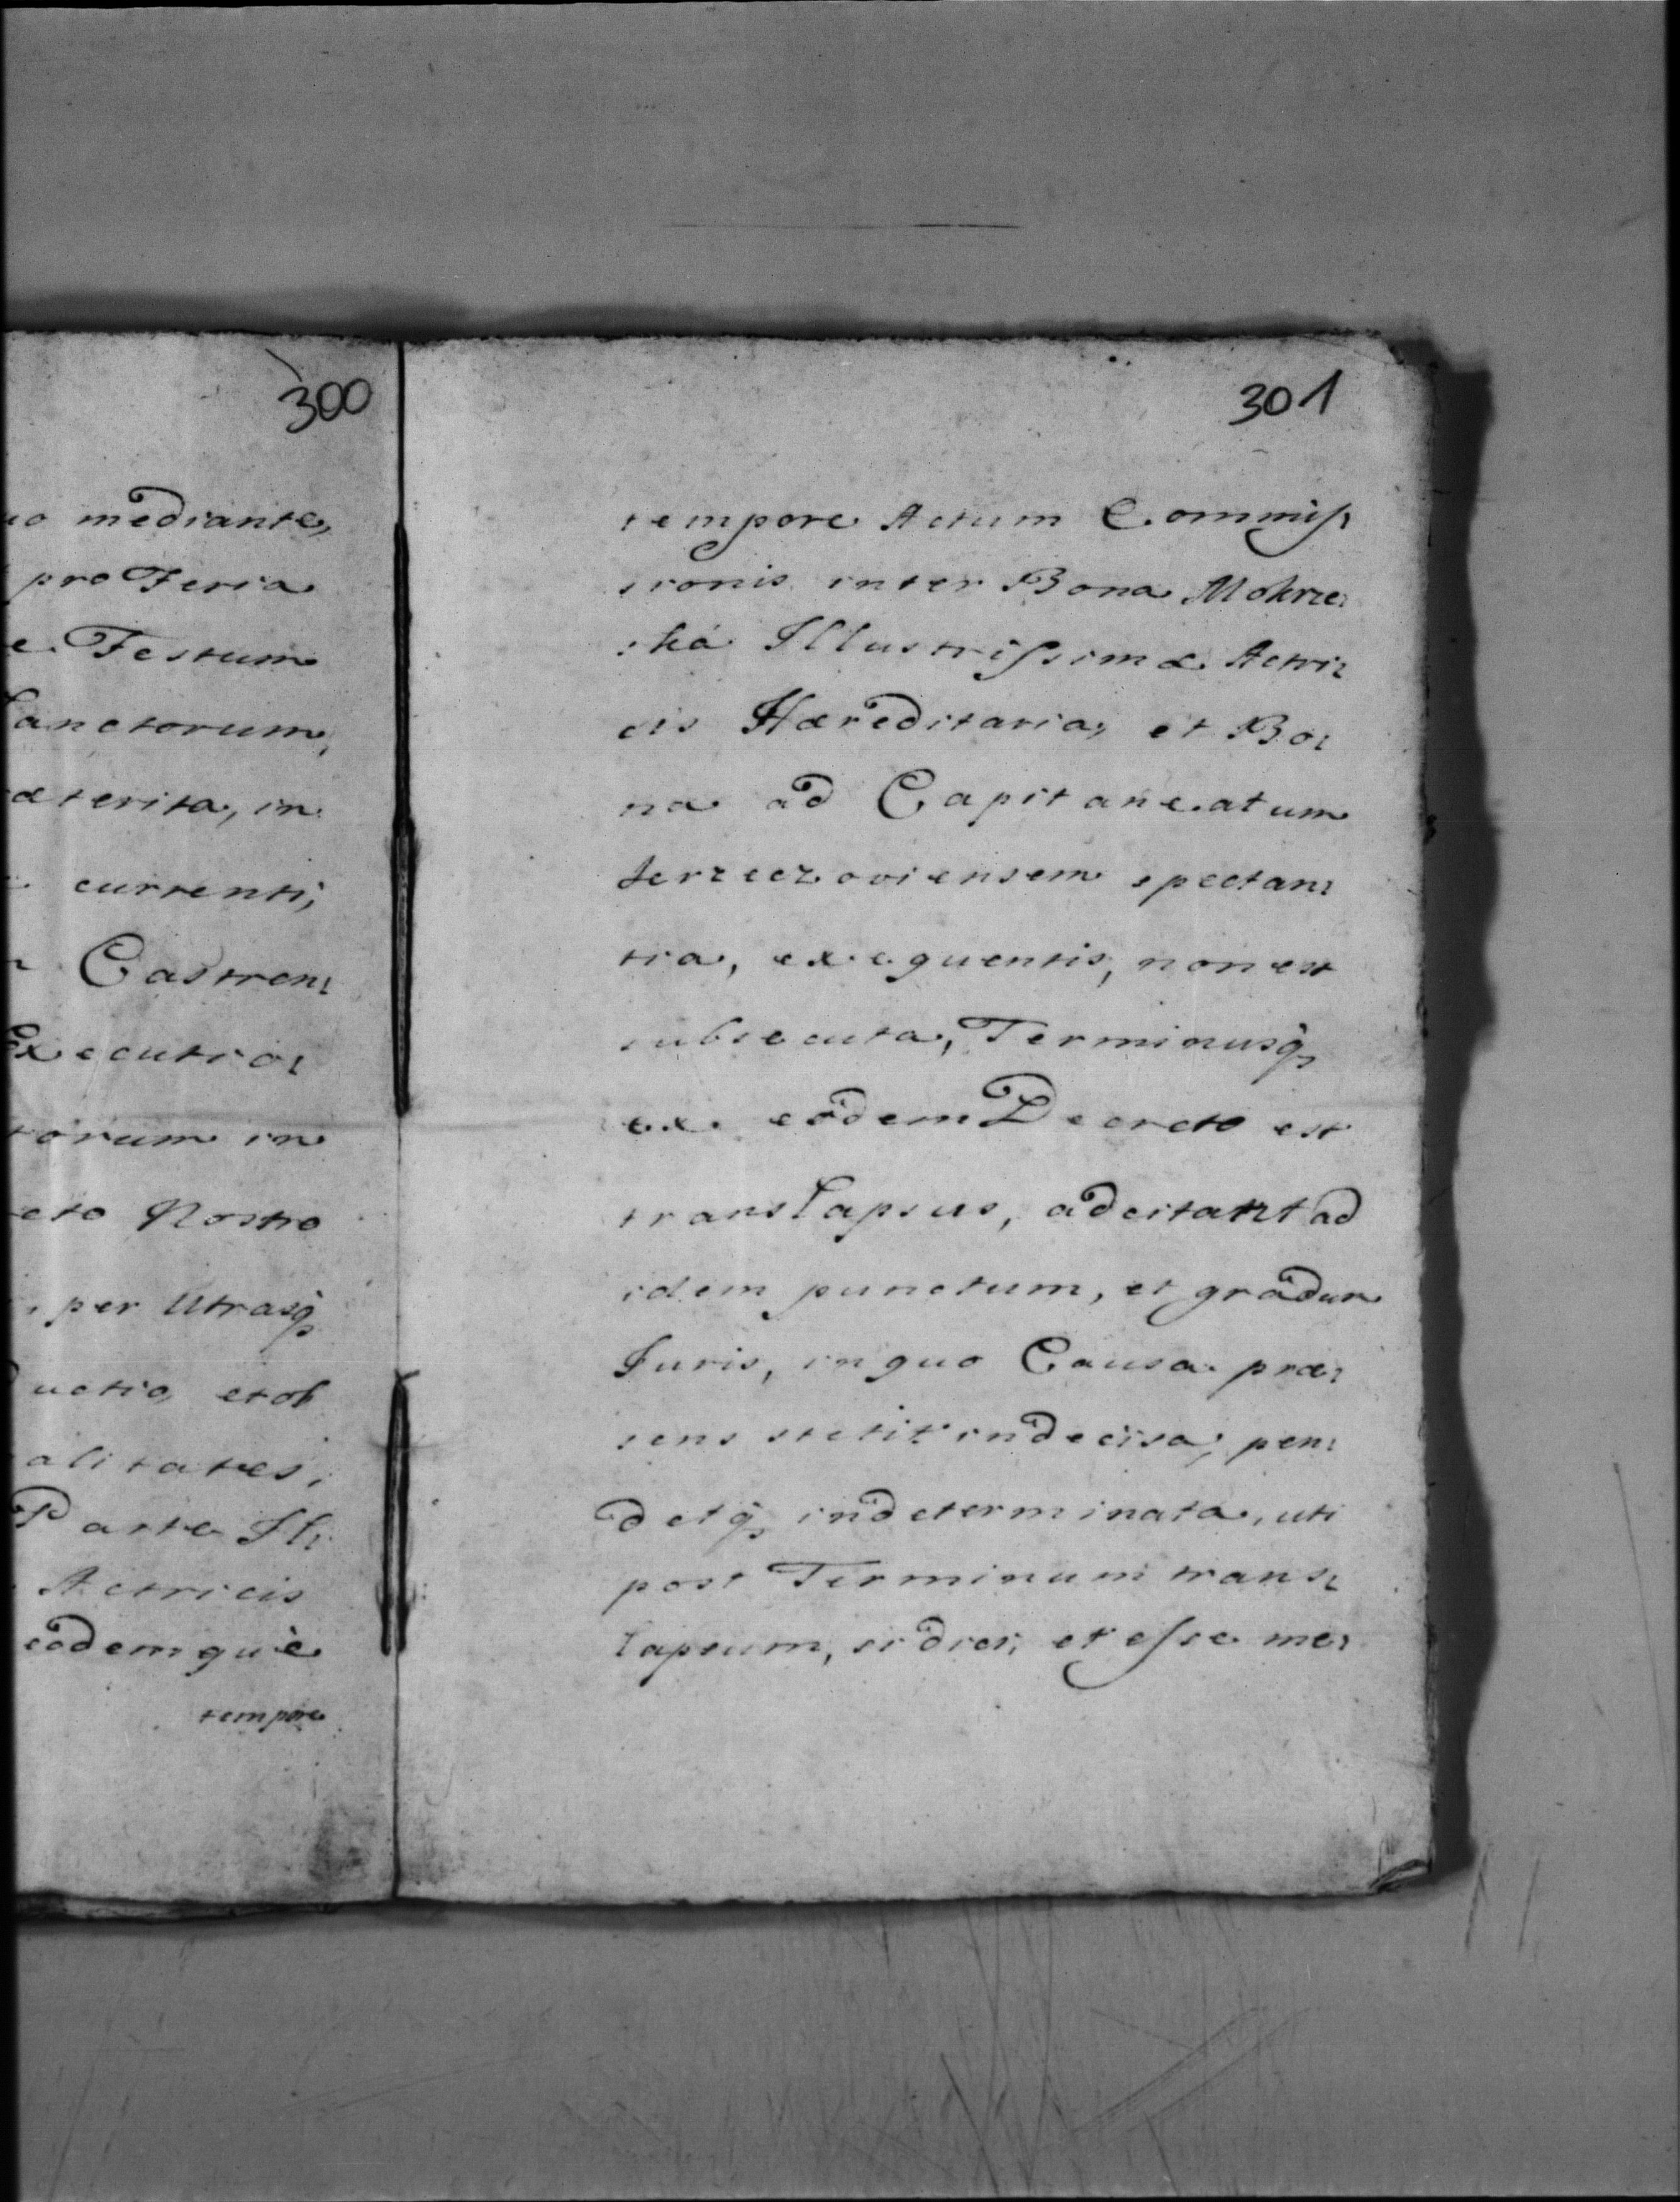 300
io mediante,
pro Feria
e Festum
Sanctorum,
æterita, in
currenti,
Castren:
Executio:
torum in
eto Nostro
per Utrasq,
uctio, et ob
alitates,
Parte Il:
Actricis
eodemquè
tempore
301
tempore Actum Commis:
sionis inter Bona Mokrze:
:ska Illustrissimæ Actri:
cis Hæreditaria, et Bo:
na ad Capitaneatum
Jerzeczoviensem spectan:
tia, exequentis, non est
subsecuta, Terminusq,
ex eodem Decreto est
translapsus, adcitant ad
idem punctum, et gradum
Juris, in quo Causa præ:
sens stetit indecisa, pen:
detq, indeterminata, uti
post Terminum trans:
lapsum, si dici, et esse me: